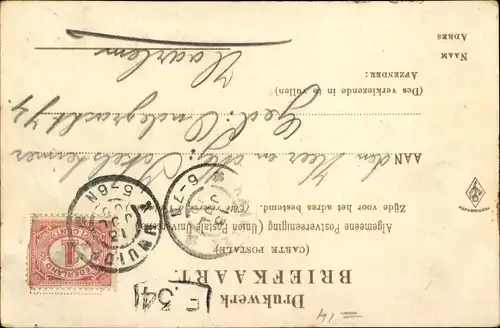 Drukwerk
BRIEFKAART.
(CARTE POSTALE)
Algemeene Postvereeniging (Union Postale Universelle)
Zijde voor het adres bestemd.
AAN den Heer en
Ged. Oudegracht 74.
Haarlem
(Des verkiezende in te vullen)
AFZENDER:
NAAM
ADRES
NEDERLAND
1
CENT
5-6N
6-7
F.34
=14